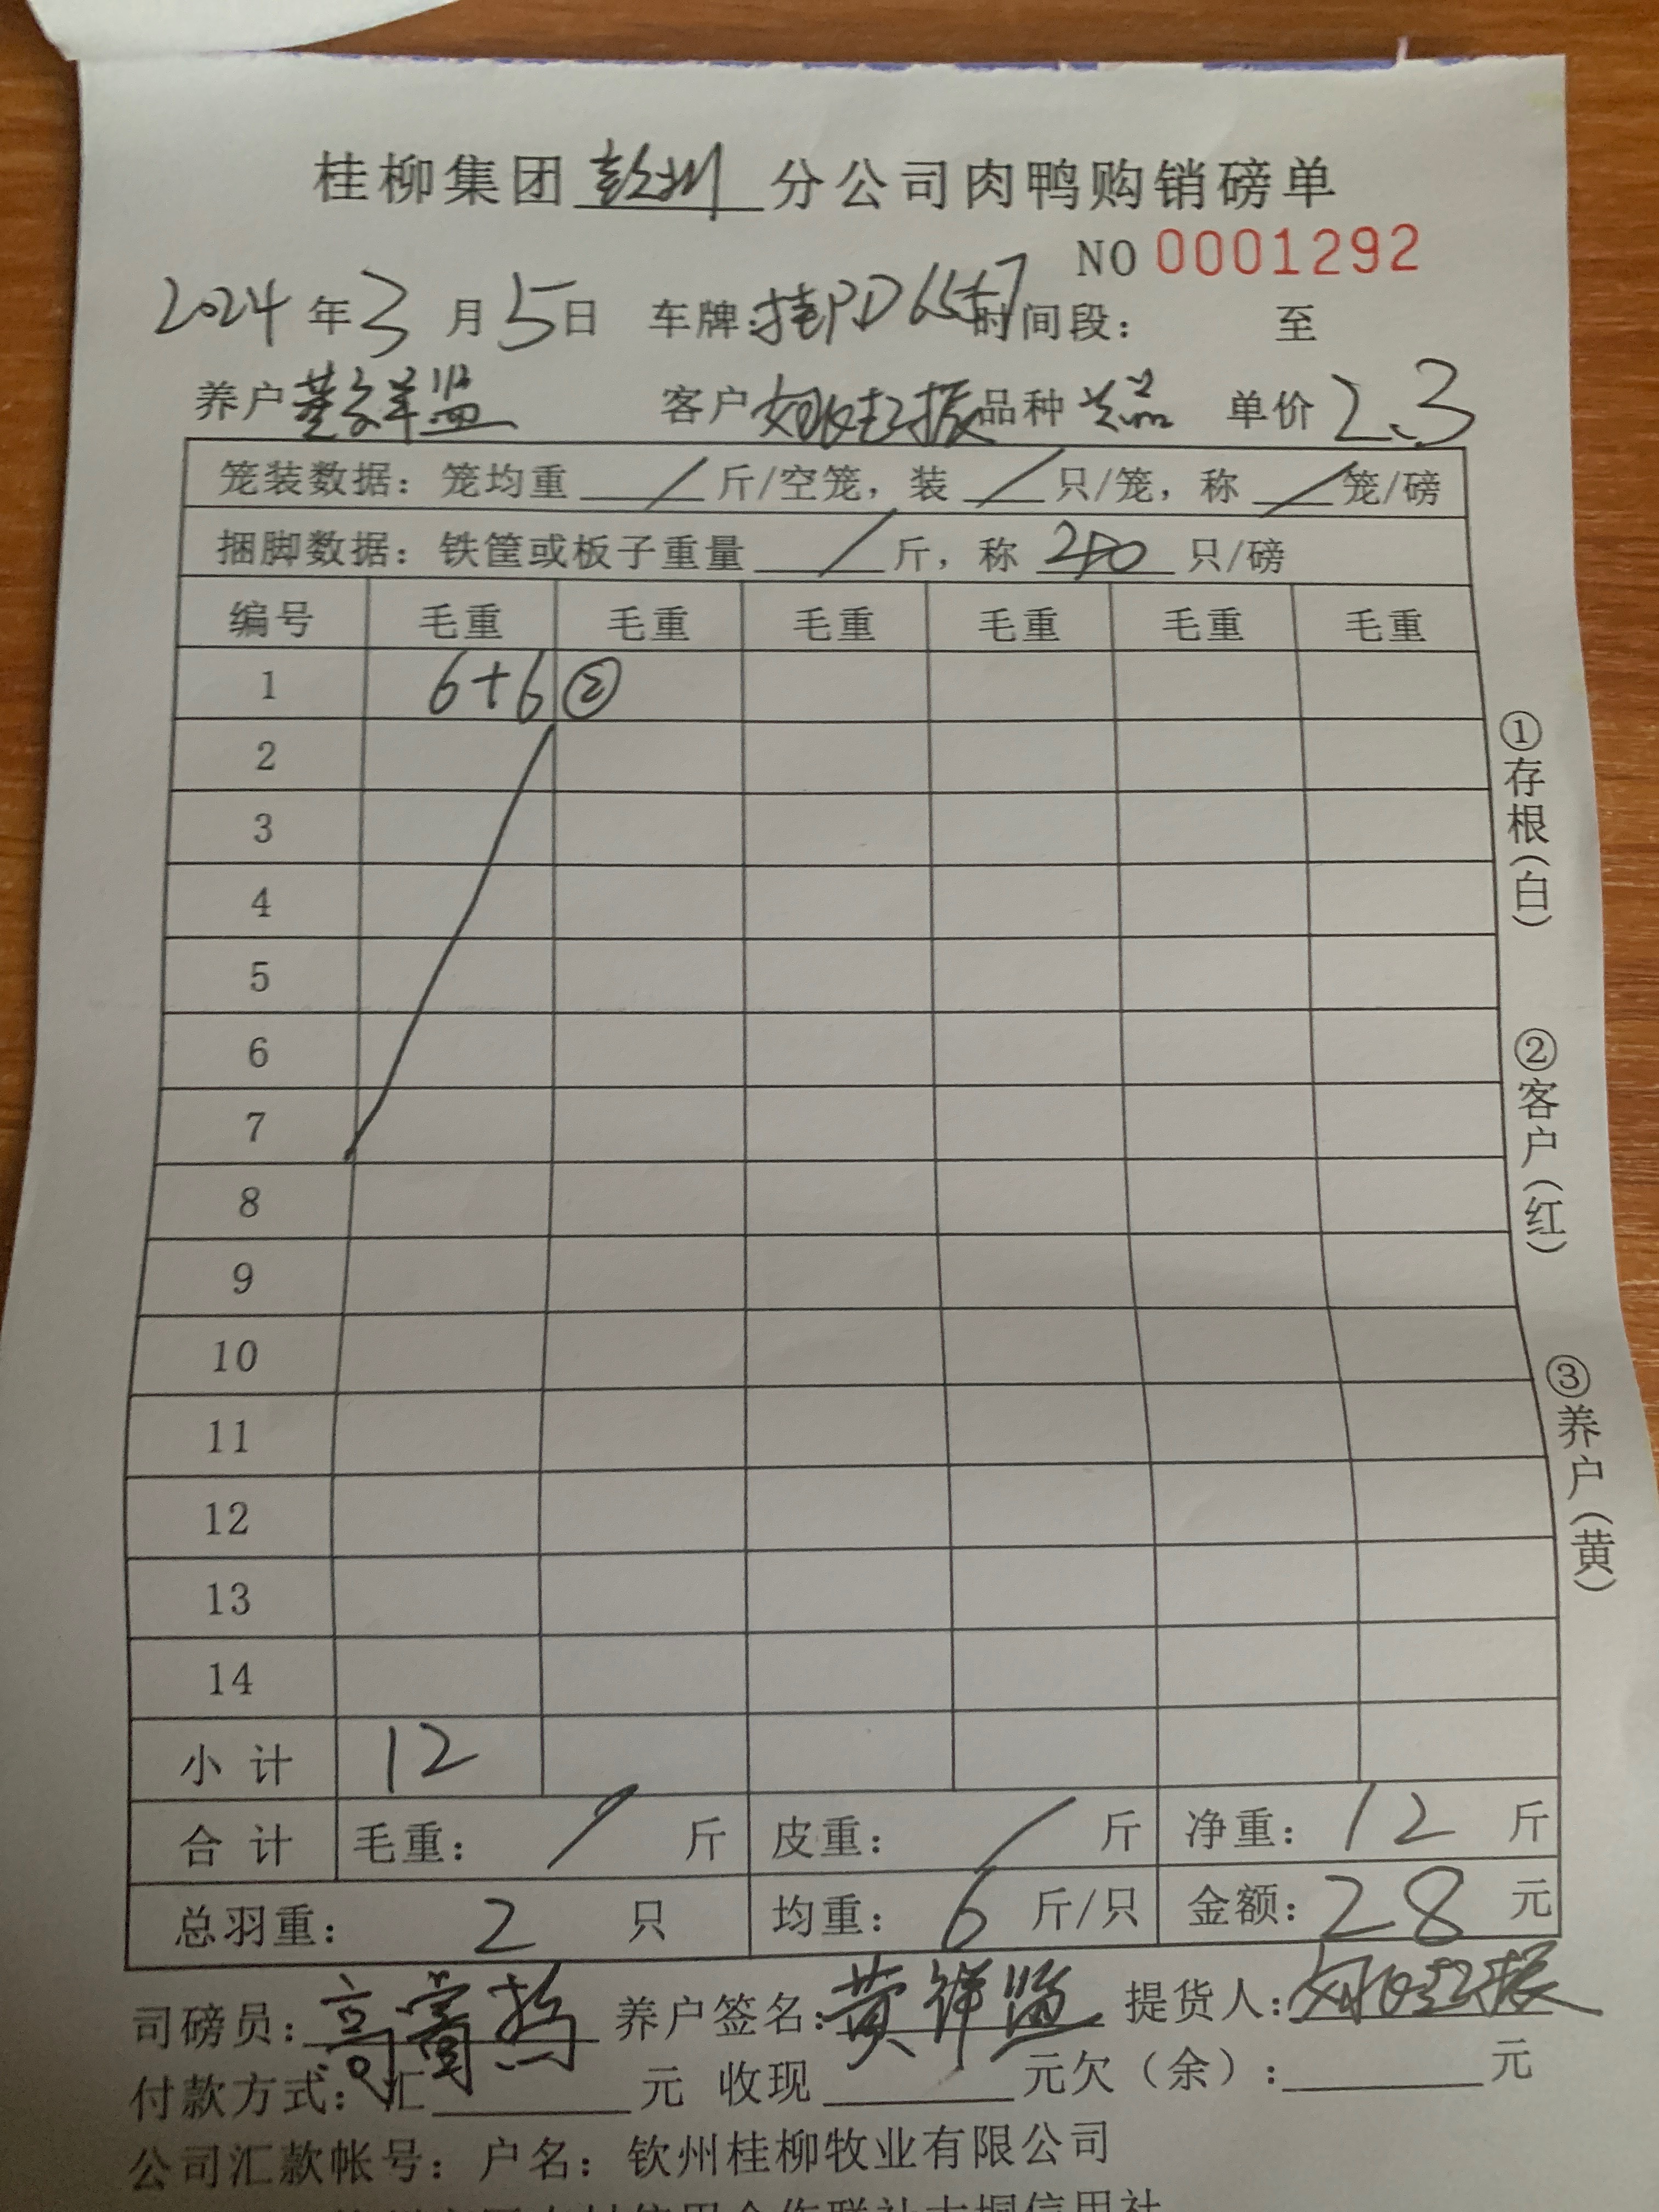 桂柳集团 分公司肉鸭购销磅单
NO 0001292
2024 年 3 月 5 日 车牌: 桂PD6557 时间段: 至
养户 客户 品种 单价 2.3
笼装数据: 笼均重 / 斤/空笼, 装 / 只/笼, 称 / 笼/磅
捆脚数据: 铁筐或板子重量 / 斤, 称 只/磅
编号 毛重 毛重 毛重 毛重 毛重 毛重
1 6+6 ②
2
3
4
5
6
7
8
9
10
11
12
13
14
小计 12
合计 毛重: / 斤 皮重: / 斤 净重: 12 斤
总羽重: 2 只 均重: 6 斤/只 金额: 28 元
司磅员: 养户签名: 黄祥 提货人:
付款方式: 汇 元 收现 元欠(余): 元
公司汇款帐号: 户名: 钦州桂柳牧业有限公司
①存根(白)
②客户(红)
③养户(黄)